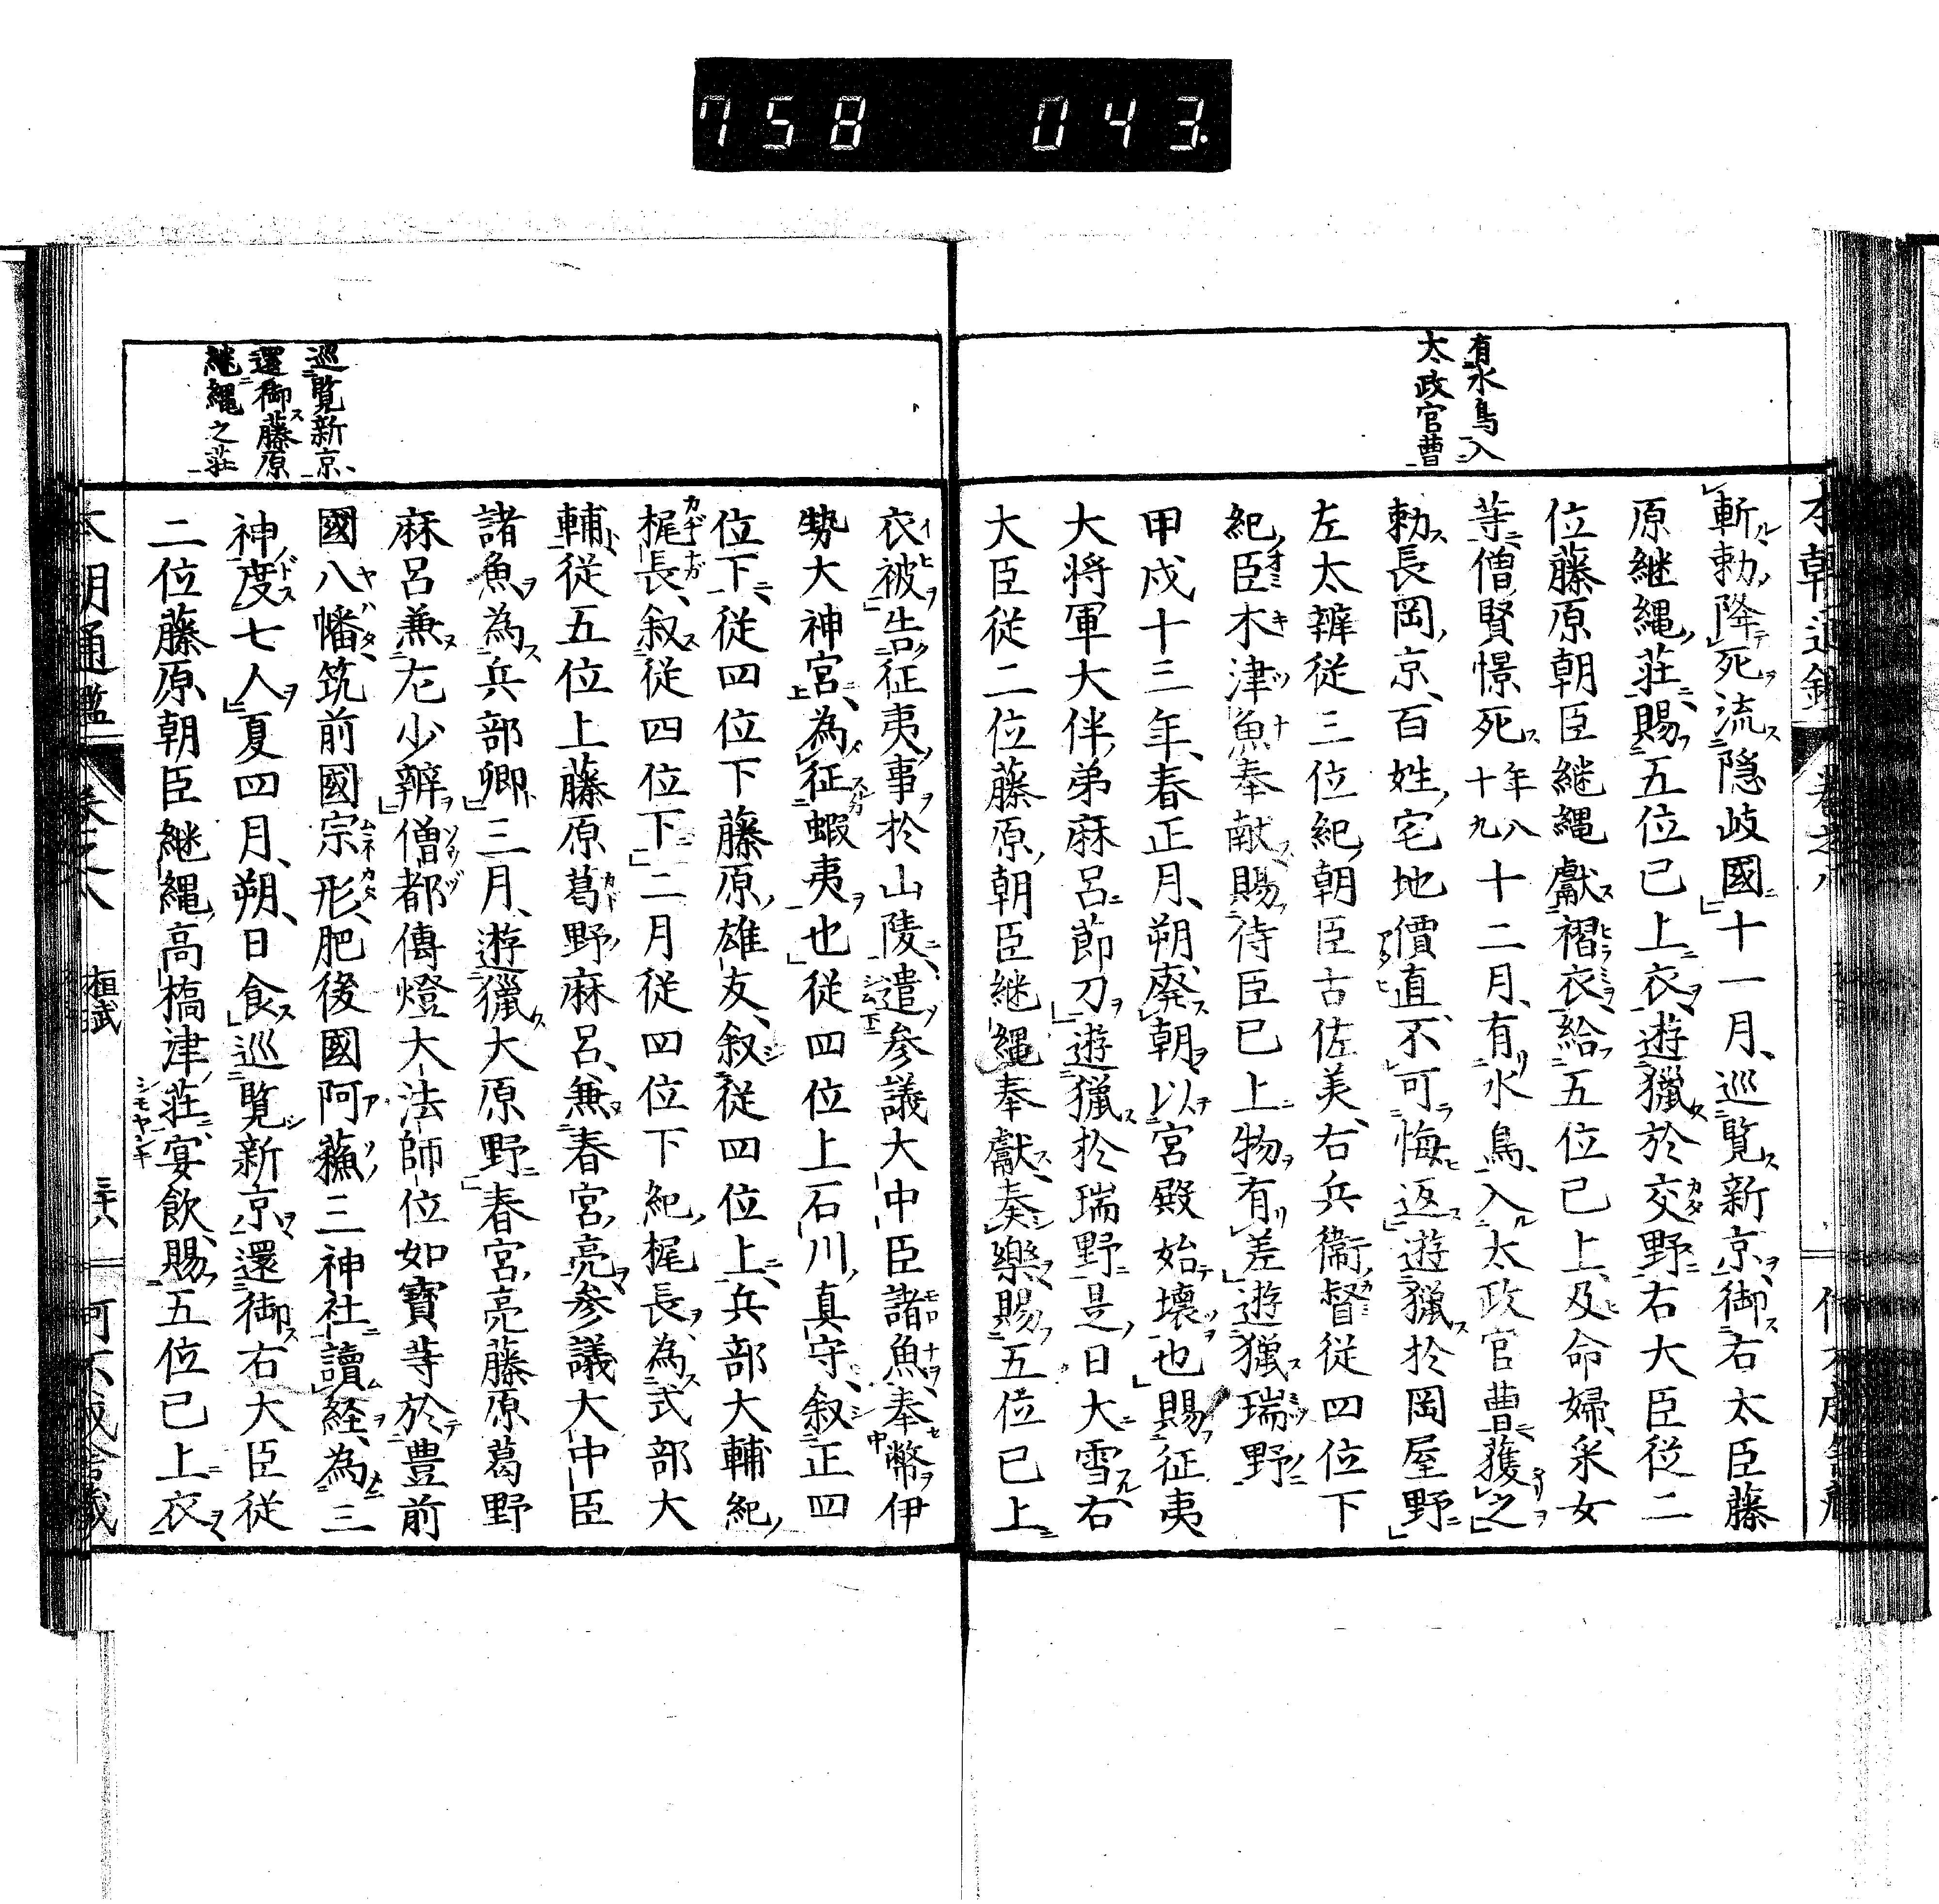 758 043
有水鳥入
太政官曹
斬勅降死流隠岐國十一月、巡覧新京、御右太臣藤
原継縄荘、賜五位已上衣、遊獵於交野右大臣従二
位藤原朝臣継縄獻褶衣、給五位已上、及命婦、采女
等、僧賢憬死年八十九十二月、有水鳥、入太政官曹、獲之
勅長岡京、百姓宅地價直、不可悔返、遊獵於岡屋野
左太辨従三位紀朝臣古佐美、右兵衞督従四位下
紀臣木津魚奉献賜侍臣已上物有差遊獵瑞野
甲戌十三年、春正月、朔、廃朝以宮殿始壊也賜征夷
大将軍大伴弟麻呂節刀遊獵於瑞野是日大雪、右
大臣従二位藤原朝臣継縄奉獻、奏樂、賜五位已上
衣被告征夷事於山陵、遣参議大中臣諸魚、奉幣伊
勢大神宮、為征蝦夷也従四位上石川真守、叙正四
位下、従四位下藤原雄友、叙従四位上、兵部大輔紀
梶長、叙従四位下二月従四位下紀梶長、為式部大
輔、従五位上藤原葛野麻呂、兼春宮亮参議大中臣
諸魚為兵部卿三月、遊獵大原野春宮亮藤原葛野
麻呂兼左少辨僧都傳燈大法師位如寳等於豊前
國八幡、筑前國宗形、肥後國阿蘇三神社讀経、為三
神度七人夏四月、朔、日食巡覧新京、還御右大臣従
二位藤原朝臣継縄高橋津荘、宴飲、賜五位已上衣
巡覧新京、
還御藤原
継縄之荘
本朝通鑑
桓武
三十八